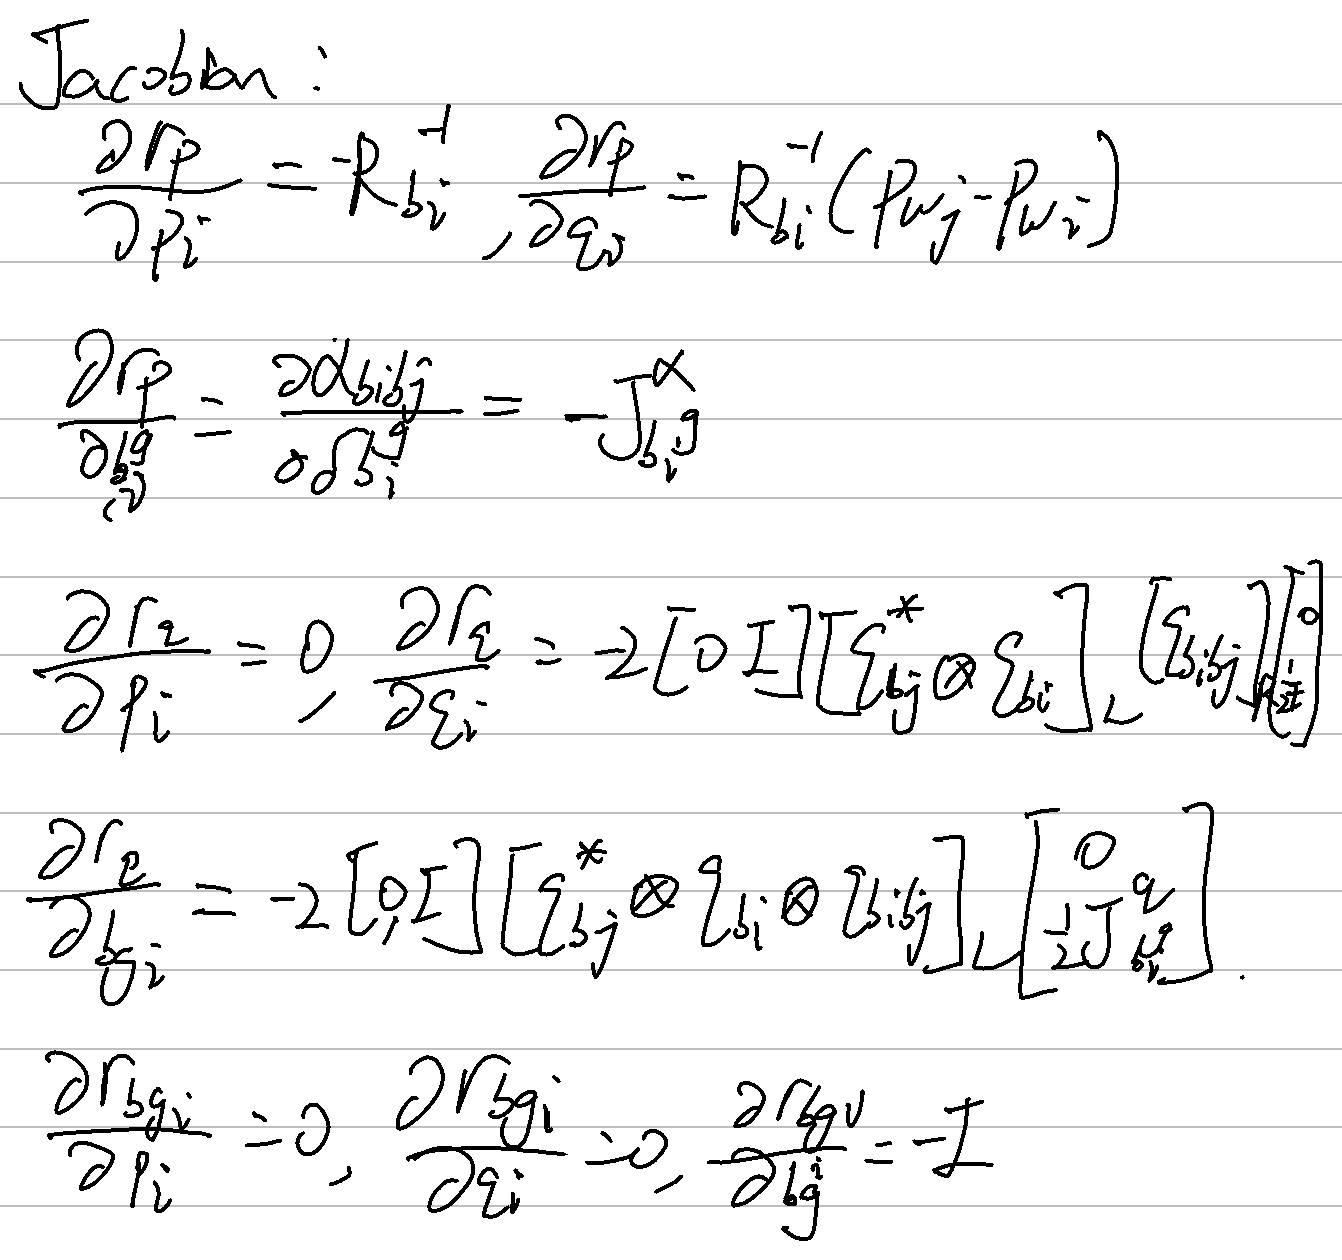 Jacobian :
∂r_p/∂p_i = -R_{b_i}^{-1}, ∂r_p/∂q_i = R_{b_i}^{-1}(p_{w_j} - p_{w_i})
∂r_p/∂b_i^g = ∂α_{b_i b_j}/∂δb_i^g = -J_{b_i^g}^α
∂r_q/∂p_i = 0, ∂r_q/∂q_i = -2[0 I][q_{b_j}^* ⊗ q_{b_i}]_L [q_{b_i b_j}]_R [0; 1/2 I]
∂r_q/∂b_{g_i} = -2[0, I][q_{b_j}^* ⊗ q_{b_i} ⊗ q_{b_i b_j}]_L [0; 1/2 J_{b_i^g}^q].
∂r_{b g_i}/∂p_i = 0, ∂r_{b g_i}/∂q_i = 0, ∂r_{b g_i}/∂b_g^i = -I